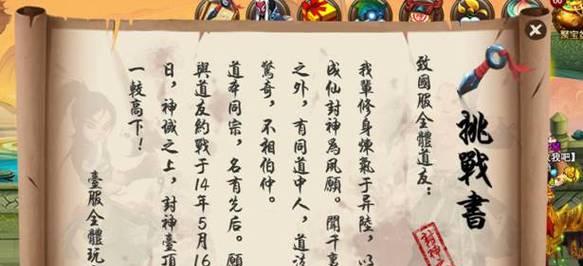 挑戰書
致國服全體道友：
我輩修身煉氣于昇陸，以
成仙封神為夙願。聞千裏
之外，有同道中人，道法
驚奇，不相伯仲。
道本同宗，名有先后。願
與道友約戰于14年5月16
日，神誠之上，封神臺頂
一較高下！
臺服全體玩
封神
聚宝
我吧】